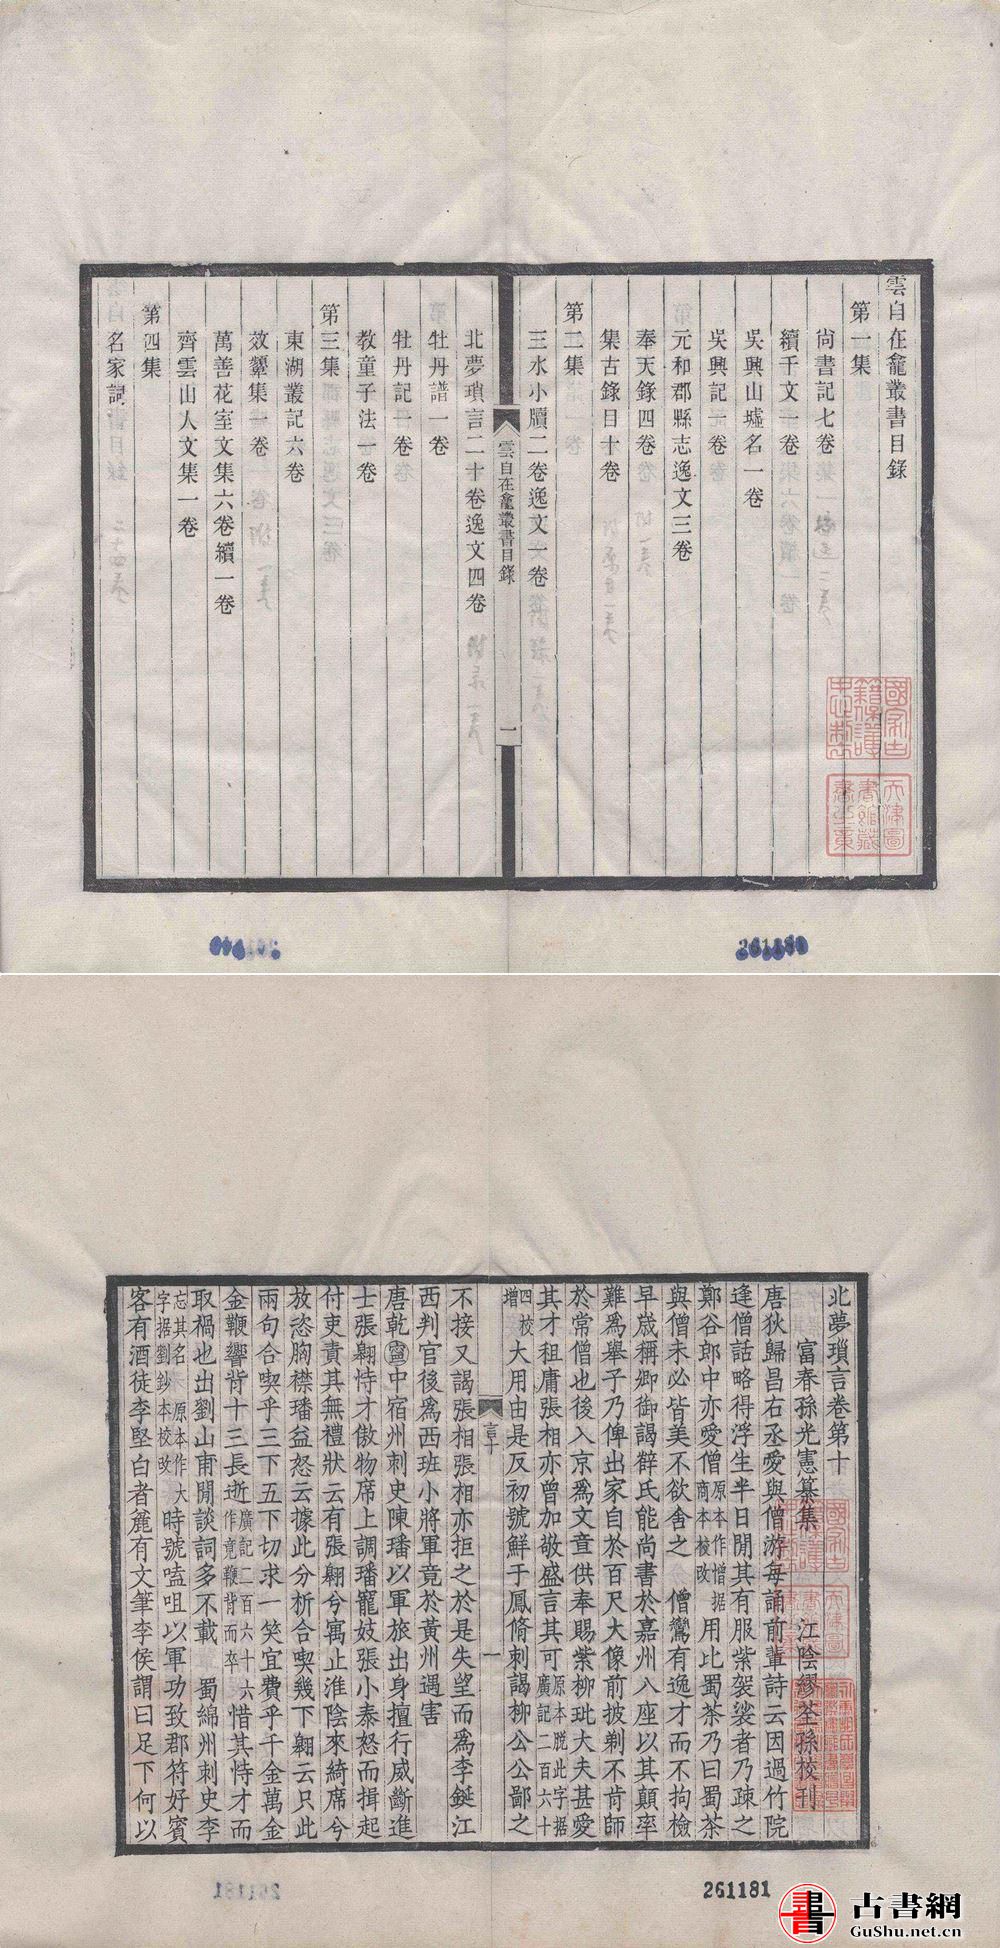 雲自在龕叢書目錄
第一集
尚書記七卷
續千文一卷
吳興山墟名一卷
吳興記一卷
元和郡縣志逸文三卷
奉天錄四卷
集古錄目十卷
第二集
三水小牘二卷逸文一卷
雲自在龕叢書目錄
一
北夢瑣言二十卷逸文四卷
牡丹譜一卷
牡丹記一卷
教童子法一卷
第三集
東湖叢記六卷
效顰集一卷
萬善花室文集六卷續一卷
齊雲山人文集一卷
第四集
名家詞
國家古籍保護
天津圖書館藏書之章
261181
北夢瑣言卷第十
富春孫光憲纂集 江陰繆荃孫校刊
唐狄歸昌右丞愛與僧游每誦前輩詩云因過竹院
逢僧話略得浮生半日閒其有服紫袈裟者乃疎之
鄭谷郎中亦愛僧原本作憎據商本校改用比蜀茶乃曰蜀茶
與僧未必皆美不欲舍之 僧鸞有逸才而不拘檢
早歲稱卿御謁薛氏能尚書於嘉州八座以其顛率
難爲舉子乃俾出家自於百尺大像前披剃不肯師
於常僧也後入京爲文章供奉賜紫柳玭大夫甚愛
其才租庸張相亦曾加敬盛言其可原本脫此字據廣記二百六十
四校增大用由是反初號鮮于鳳脩刺謁柳公公鄙之
言十
一
不接又謁張相張相亦拒之於是失望而爲李鋋江
西判官後爲西班小將軍竟於黃州遇害
唐乾寧中宿州刺史陳璠以軍旅出身擅行威斷進
士張翱恃才傲物席上調璠寵妓張小泰怒而揖起
付吏責其無禮狀云有張翱兮寓止淮陰來綺席兮
放恣胸襟璠益怒云據此分析合喫幾下翱云只此
兩句合喫乎三下五下切求一笑宜費乎千金萬金
金鞭響背十三長逝廣記二百六十六作竟鞭背而卒惜其恃才而
取禍也出劉山甫閒談詞多不載 蜀綿州刺史李
忘其名原本作大字據劉鈔本校改時號嗑咀以軍功致郡符好賓
客有酒徒李堅白者麄有文筆李侯謂曰足下何以
261181
書
古書網
GuShu.net.cn